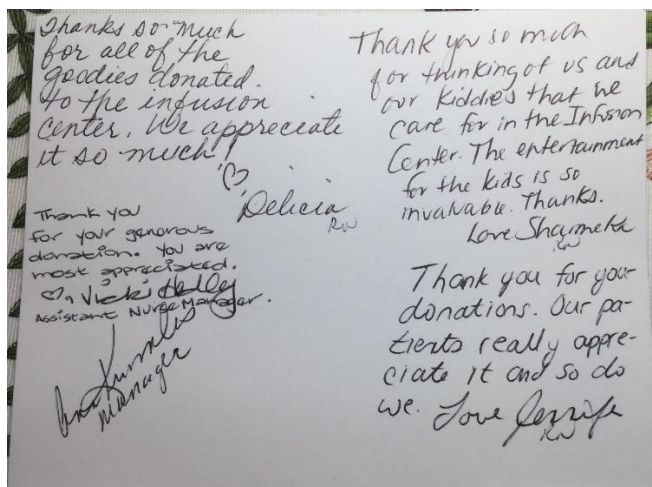 Thanks so much
for all of the
goodies donated.
to the infusion
center. We appreciate
it so much!
Delicia
RN
Thank you
for your generous
donation. You are
most appreciated.
Vicki
Assistant Nurse Manager.
Manager
Thank you so much
for thinking of us and
our kiddies that we
care for in the Infusion
Center. The entertainment
for the kids is so
invaluable. Thanks.
Love Sharmeka
RN
Thank you for your
donations. Our pa-
tients really appre-
ciate it and so do
we. Love Jennifer
RN